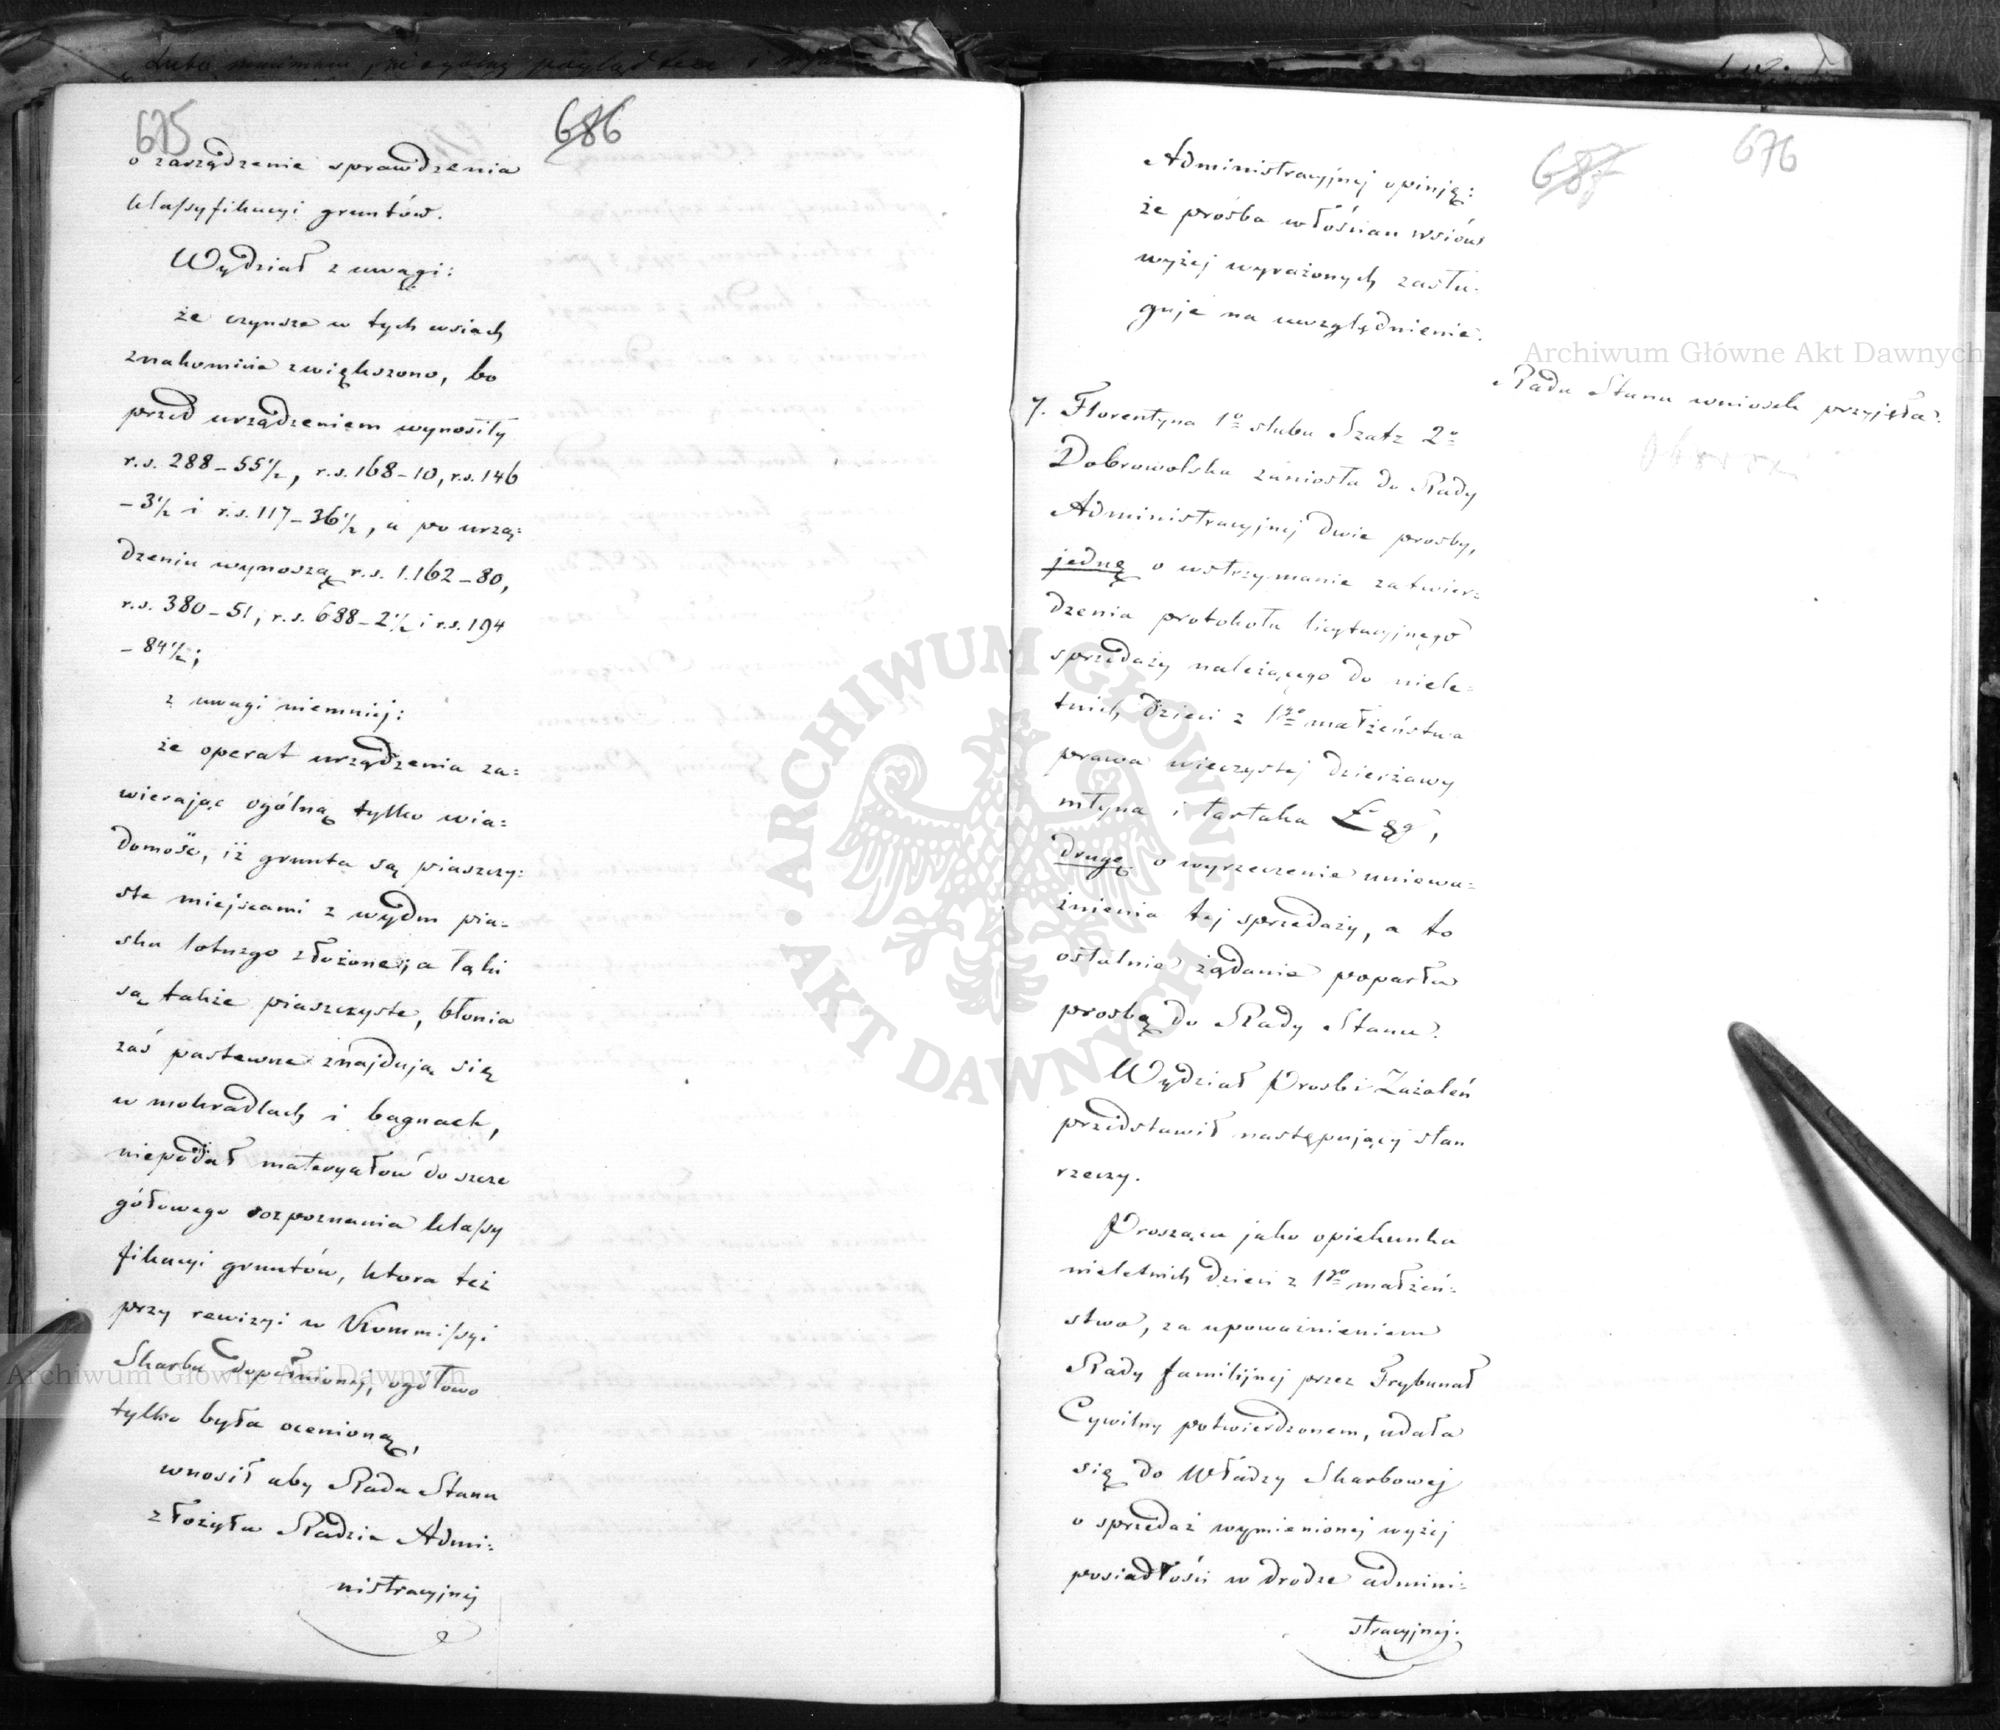 675
686
o zarządzenie sprawdzenia
klassyfikacyi gruntów.
Wydział z uwagi:
że czynsze w tych wsiach
znakomicie zwiększono, bo
przed urządzeniem wynosiły
r.s. 288–55½, r.s. 168–10, r.s. 146
–3½ i r.s. 117–36½, a po urzą:
dzeniu wynoszą r.s. 1.162–80,
r.s. 380–51, r.s. 688–2½ i r.s. 194
–84½;
z uwagi niemniej:
że operat urządzenia za:
wierając ogólną tylko wia:
domość, iż grunta są piaszczy:
ste miejscami z wydm pia:
sku lotnego złożone, a łąki
są także piaszczyste, błonia
zaś pastewne znajdują się
w mokradlach i bagnach,
niepodał materyałów do szcze
gółowego rozpoznania klassy
fikacyi gruntów, ktora też
przy rewizyi w Kommissyi
Skarbu dopełnionej, ogółowo
tylko była ocenioną,
wnosił aby Rada Stanu
złożyła Radzie Admi:
nistracyjnej
687
676
Administracyjnej opinję:
że prośba włościan wsiów
wyżej wyrażonych zasłu:
guje na uwzględnienie.
Rada Stanu wniosek przyjęła.
7. Florentyna 1o ślubu Szatz 2o
Dobrowolska zaniosła do Rady
Administracyjnej dwie prośby,
jednę o wstrzymanie zatwier:
dzenia protokołu licytacyjnego
sprzedaży należącego do niele:
tnich dzieci z 1go małżeństwa
prawa wieczystej dzierżawy
młyna i tartaka Łęg,
drugę o wyrzeczenie uniewa:
żnienia tej sprzedaży, a to
ostatnie żądanie poparła
prosbą do Rady Stanu.
Wydział Prosb i Zażaleń
przedstawił następujący stan
rzeczy.
Prosząca jako opiekunka
nieletnich dzieci z 1go małżeń:
stwa, za upoważnieniem
Rady familijnej przez Trybunał
Cywilny potwierdzonem, udała
się do Władzy Skarbowej
o sprzedaż wymienionej wyżej
posiadłości w drodze admini:
stracyjnej.
Archiwum Główne Akt Dawnych
Archiwum Główne Akt Dawnych
ARCHIWUM GŁÓWNE AKT DAWNYCH